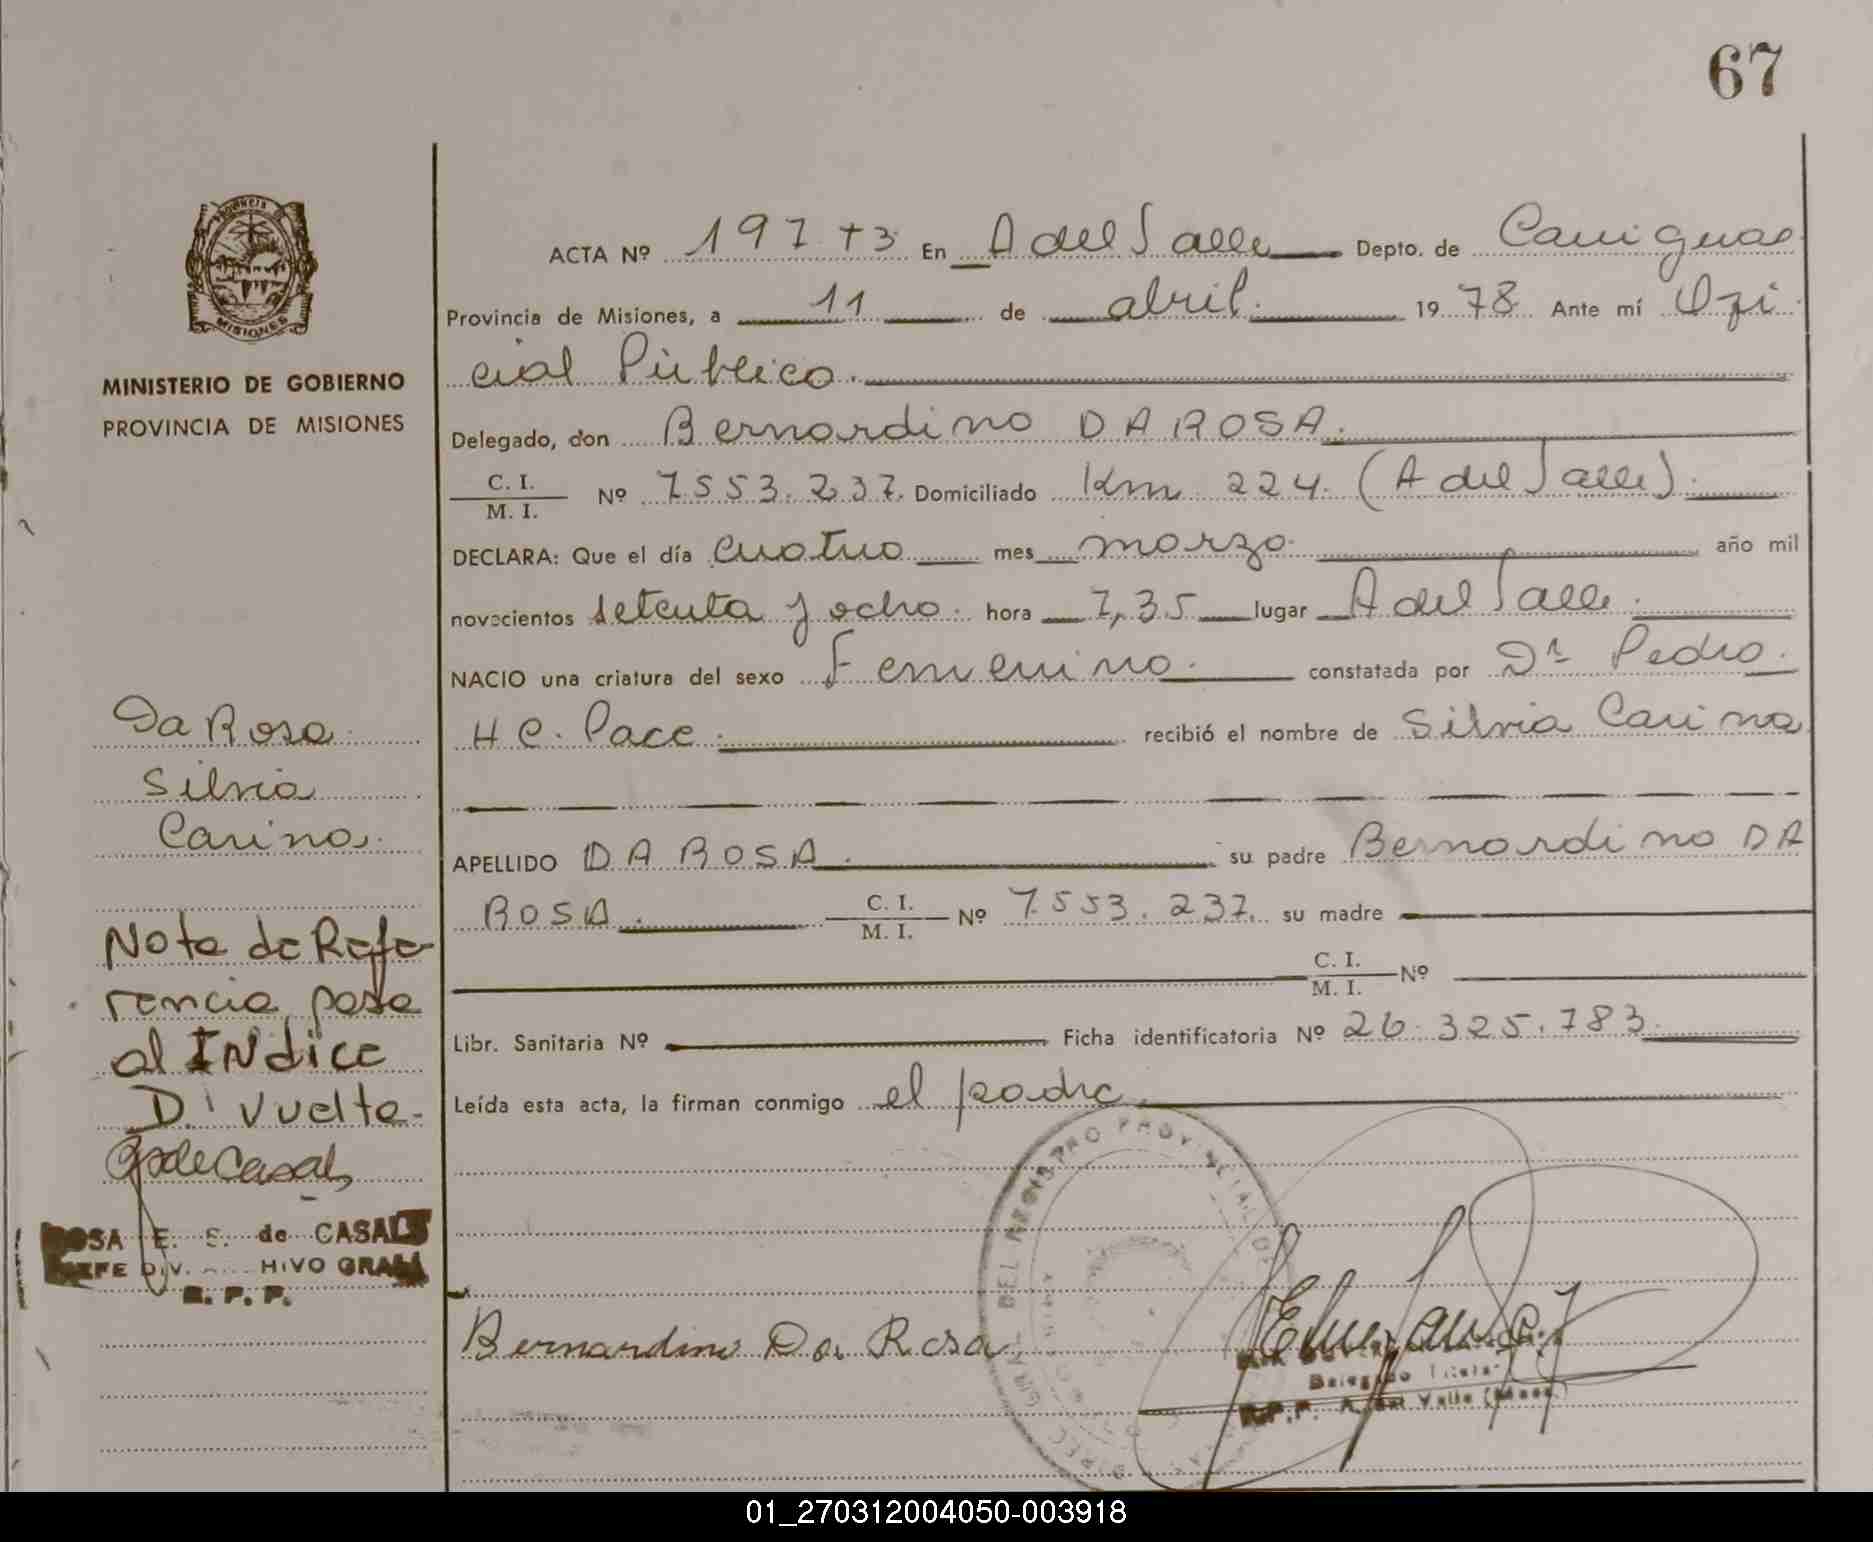 67
PROVINCIA DE
MISIONES
MINISTERIO DE GOBIERNO
PROVINCIA DE MISIONES
ACTA Nº 197 T3 En A del Valle Depto. de Cainguas
Provincia de Misiones, a 11 de abril 1978 Ante mí Ofi
cial Público.
Delegado, don Bernardino DA ROSA.
C. I.
M. I. Nº 7.553.237. Domiciliado Km 224. (A del Valle).
DECLARA: Que el día cuatro mes marzo año mil
novecientos setenta y ocho. hora 7,35 lugar A del Valle.
NACIO una criatura del sexo Femenino. constatada por Dr Pedro.
H C. Pace. recibió el nombre de Silvia Carina
APELLIDO DA ROSA. su padre Bernardino DA
ROSA. C. I.
M. I. Nº 7.553.237. su madre
C. I.
M. I. Nº
Libr. Sanitaria Nº Ficha identificatoria Nº 26.325.783.
Leída esta acta, la firman conmigo el padre
Da Rosa.
Silvia
Carina.
Nota de Refe-
rencia pasa
al INdice
D. Vuelta.
ROSA E. S. de CASALS
JEFE DIV. HIVO GRAL
R. P. P.
Bernardino Da Rosa
DEL REGISTRO PROVINCIAL DE
Delegado Titular
R.P.P. A. del Valle (Mnes.)
01_270312004050-003918